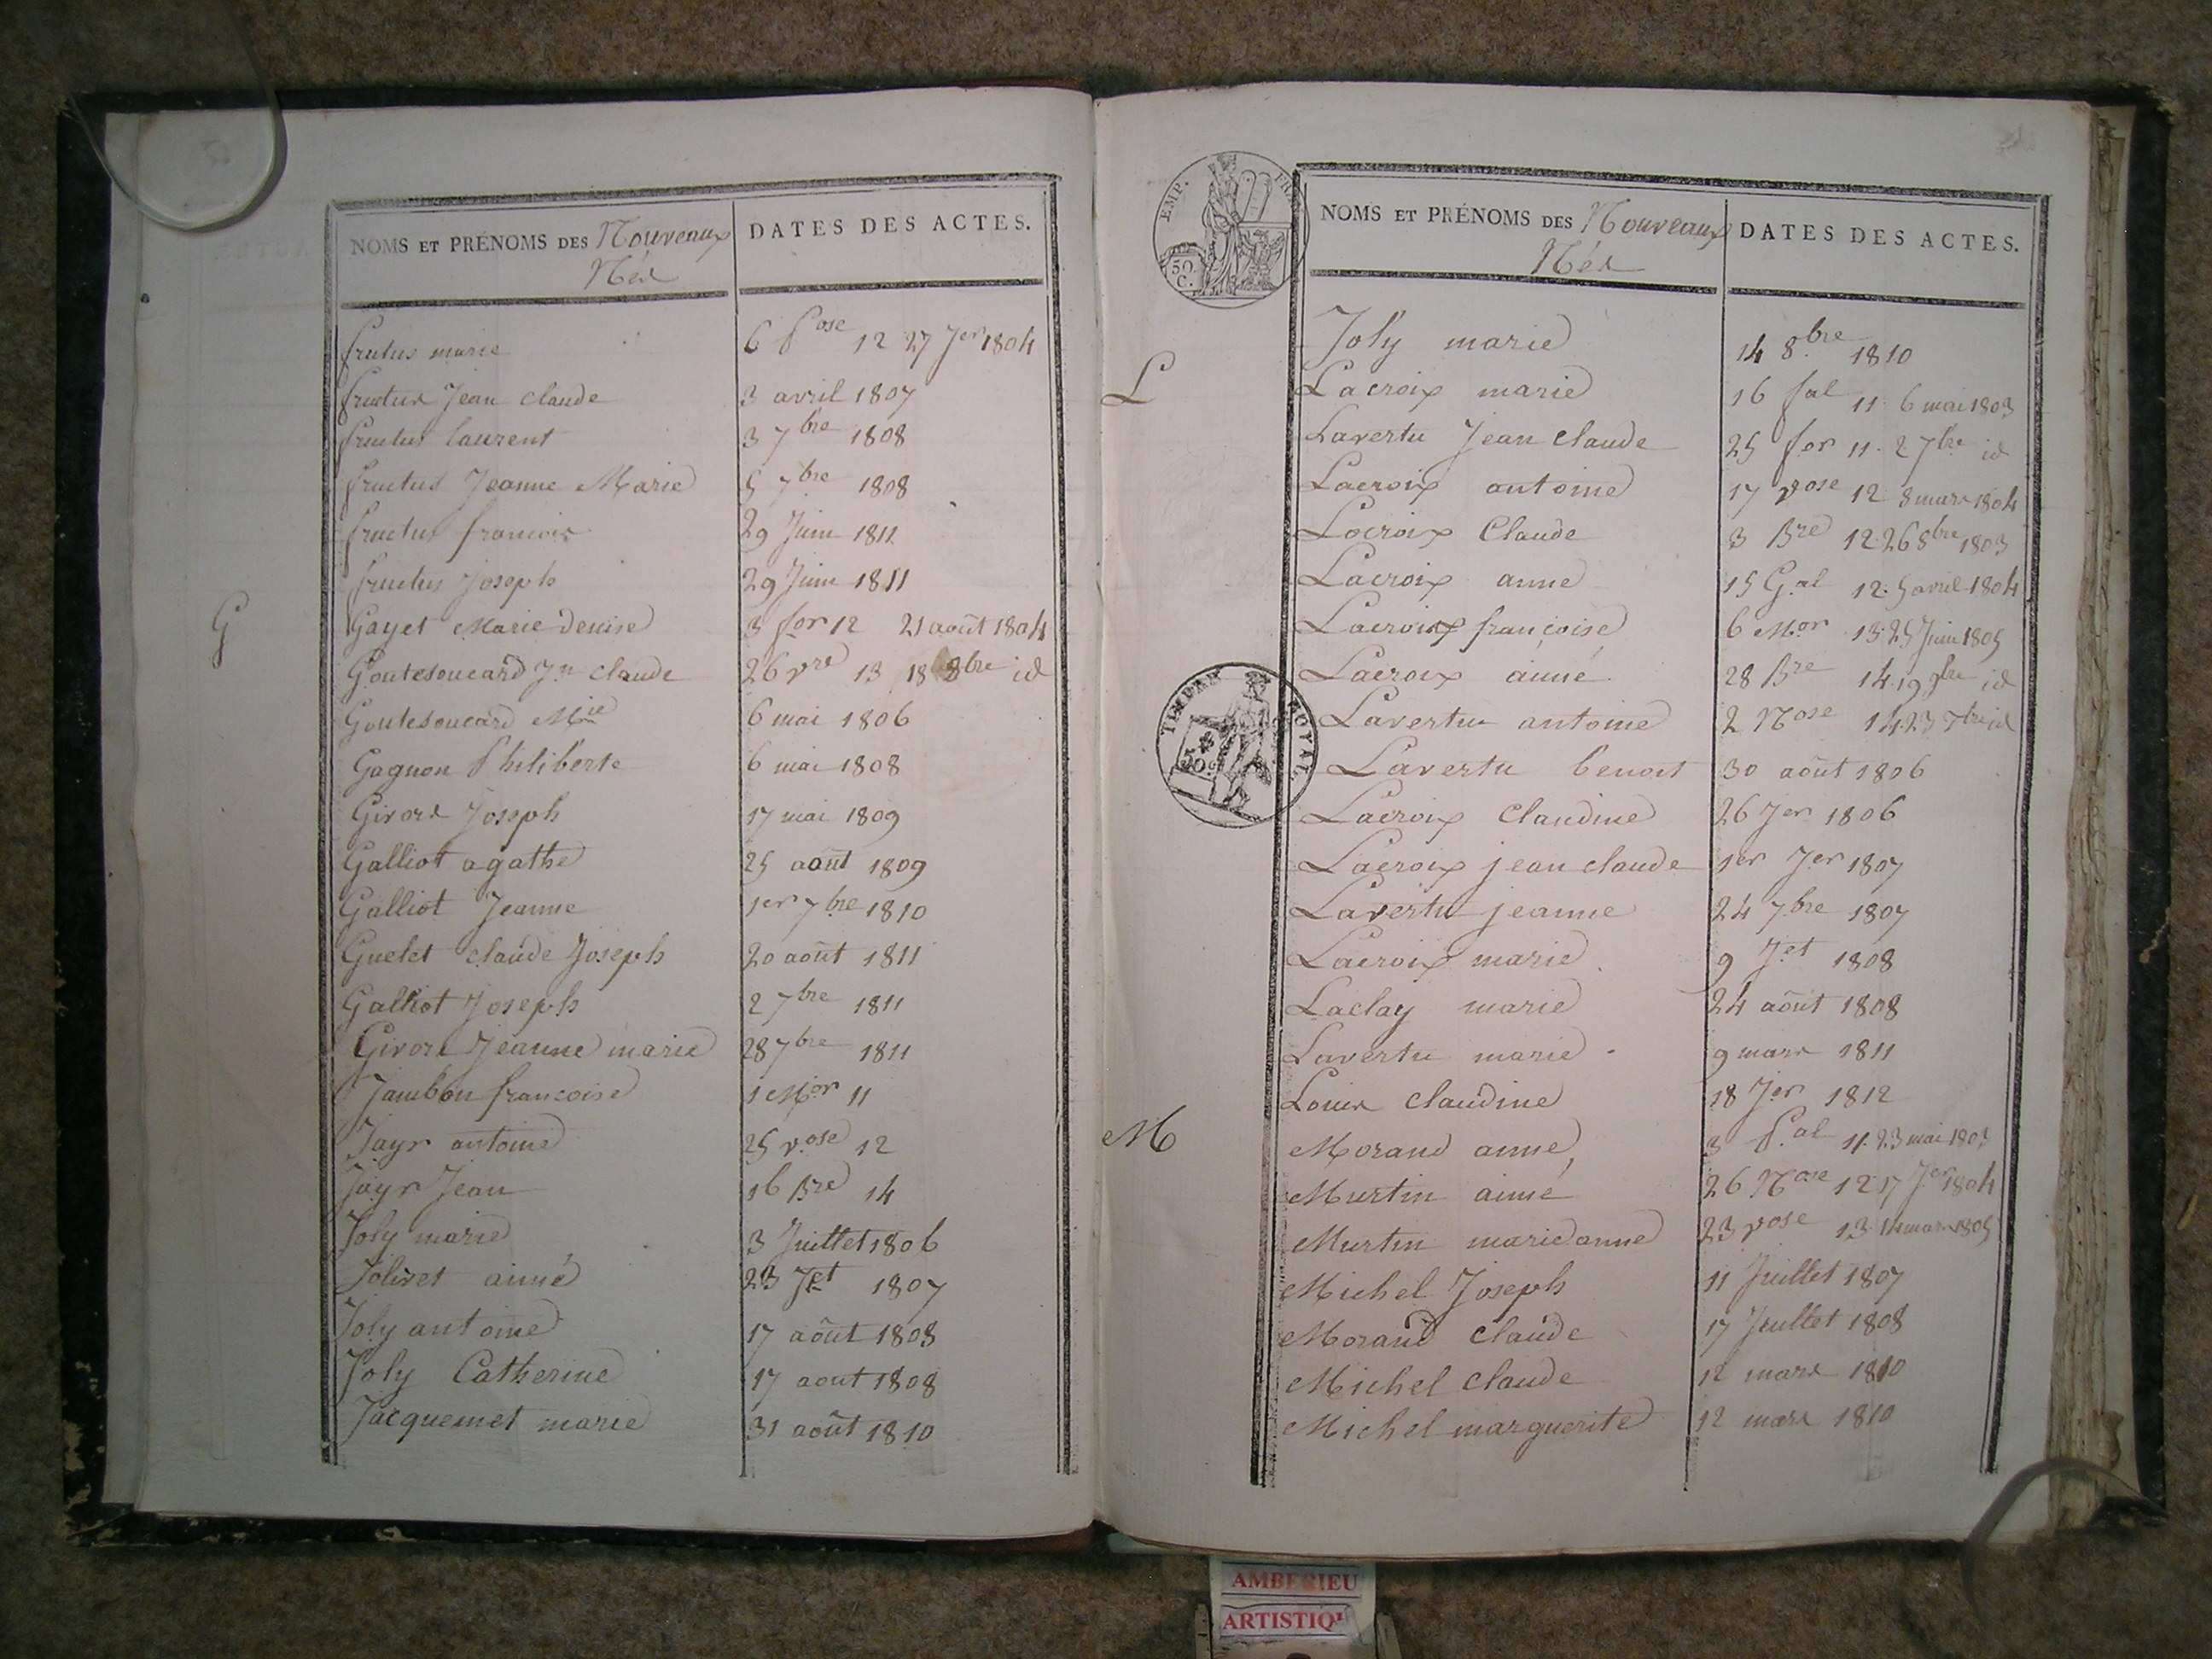 NOMS ET PRÉNOMS DES Nouveaux Nés
DATES DES ACTES.
fructus marie 6 Pose 12 27 Jer 1804
fructus Jean Claude 3 avril 1807
fructus laurent 3 7bre 1808
fructus Jeanne Marie 5 7bre 1808
fructus francois 29 Juin 1811
fructus Joseph 29 Juin 1811
G
Gayet Marie Denise 3 for 12 21 août 1804
Goutesoucard Jn Claude 26 vre 13 18 8bre id
Goutesoucard Mie 6 mai 1806
Gagnon Philiberte 6 mai 1808
Girord Joseph 17 mai 1809
Galliot agathe 25 août 1809
Galliot Jeanne 1er 7bre 1810
Guelet Claude Joseph 20 août 1811
Galliot Joseph 2 7bre 1811
Jeanne marie 28 7bre 1811
Jambon francoise 1 Mor 11
Jayr antoine 25 vose 12
Jayr Jean 16 Bre 14
Joly marie 3 Juillet 1806
Jolivet aimé 23 Jet 1807
Joly antoine 17 août 1808
Joly Catherine 17 aout 1808
Jacquemet marie 31 août 1810
EMP. FR
50 C.
NOMS ET PRÉNOMS DES Nouveaux Nés
DATES DES ACTES.
Joly marie 14 8bre 1810
L
Lacroix marie 16 fal 11. 6 mai 1803
Lavertu Jean Claude 25 for 11. 2 7bre id
Lacroix antoine 17 vose 12 8 mars 1804
Locroix Claude 3 Bre 12. 26 8bre 1803
Lacroix anne 15 Gal 12. 5 avril 1804
Lacroix françoise 6 Mor 13. 25 Juin 1805
Lacroix aimé 28 Bre 14. 19 9bre id
TIMBRE ROYAL
Lavertu antoine 2 Nose 14. 23 id
Lavertu benoit 30 août 1806
Lacroix Claudine 26 Jer 1806
Lacroix jean claude 1er Jer 1807
Lavertu jeanne 24 7bre 1807
Lacroix marie 9 Jet 1808
Laclay marie 24 août 1808
Lavertu marie 9 mars 1811
Louis Claudine 18 Jer 1812
M
Morand anne, 3 Pal 11. 23 mai 1803
Murtin aimé 26 Nose 12 17 Jer 1804
Murtin marie anne 23 vose 13. 14 mars 1805
Michel Joseph 11 Juillet 1807
Morand Claude 17 Juillet 1808
Michel Claude 12 mars 1810
Michel marguerite 12 mars 1810
AMBERIEU
ARTISTIQ